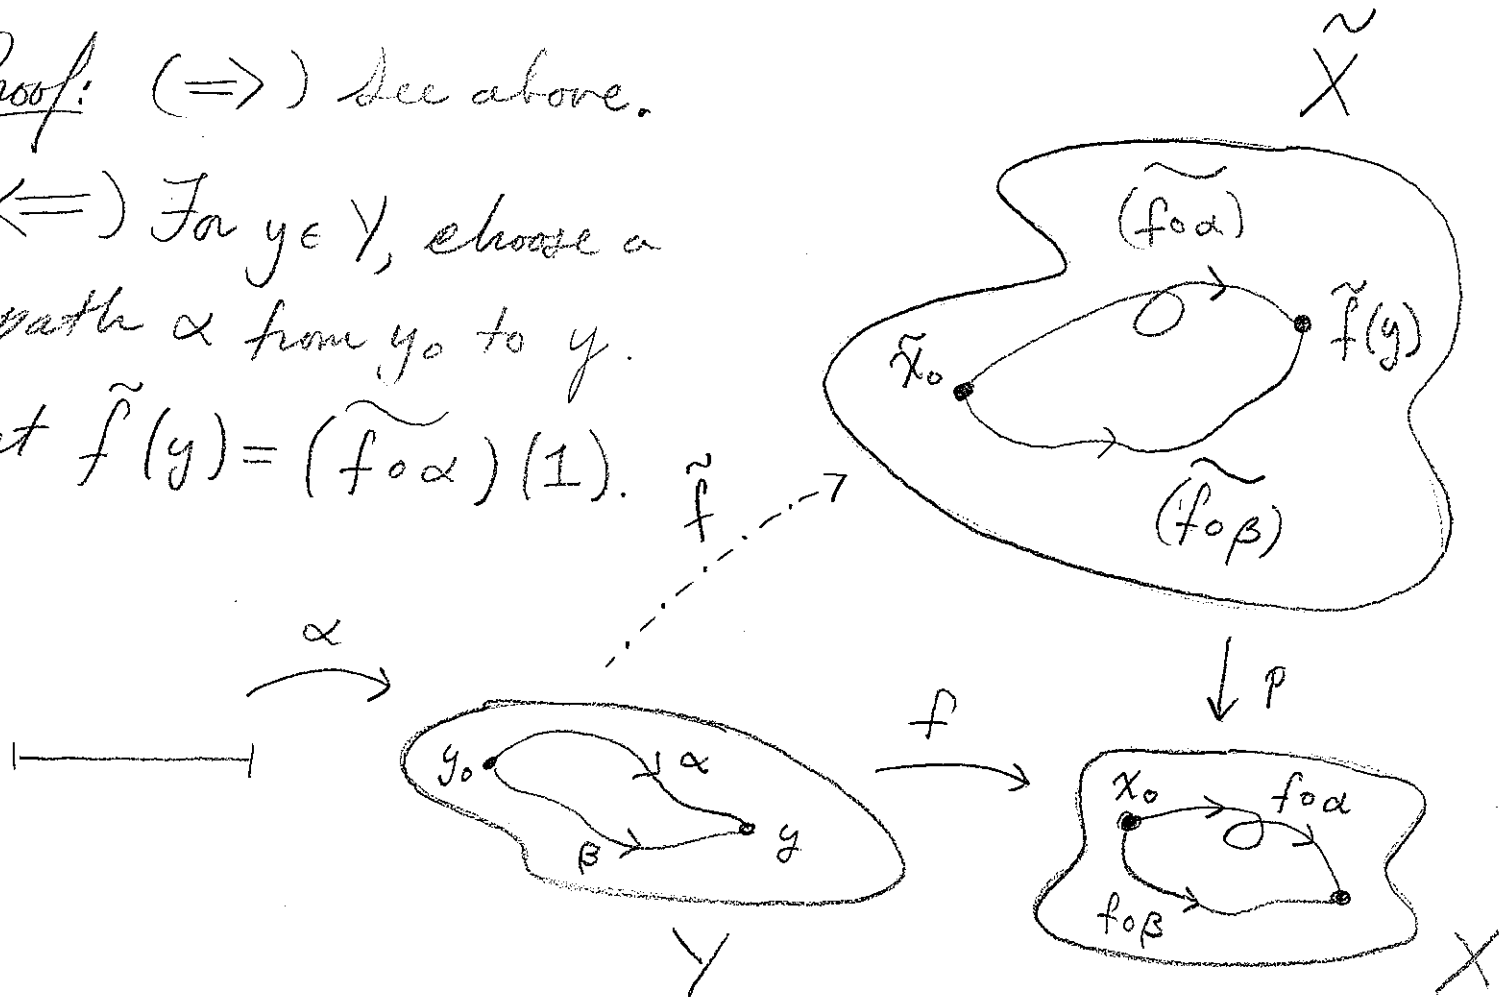 Proof: (=>) See above.
(<=) For y ∈ Y, choose a
path α from y₀ to y.
et f̃(y) = (f∘α)~(1).
X̃
(f∘α)~
x̃₀
f̃(y)
(f∘β)~
f̃
α
p
f
y₀
α
β
y
Y
x₀
f∘α
f∘β
X